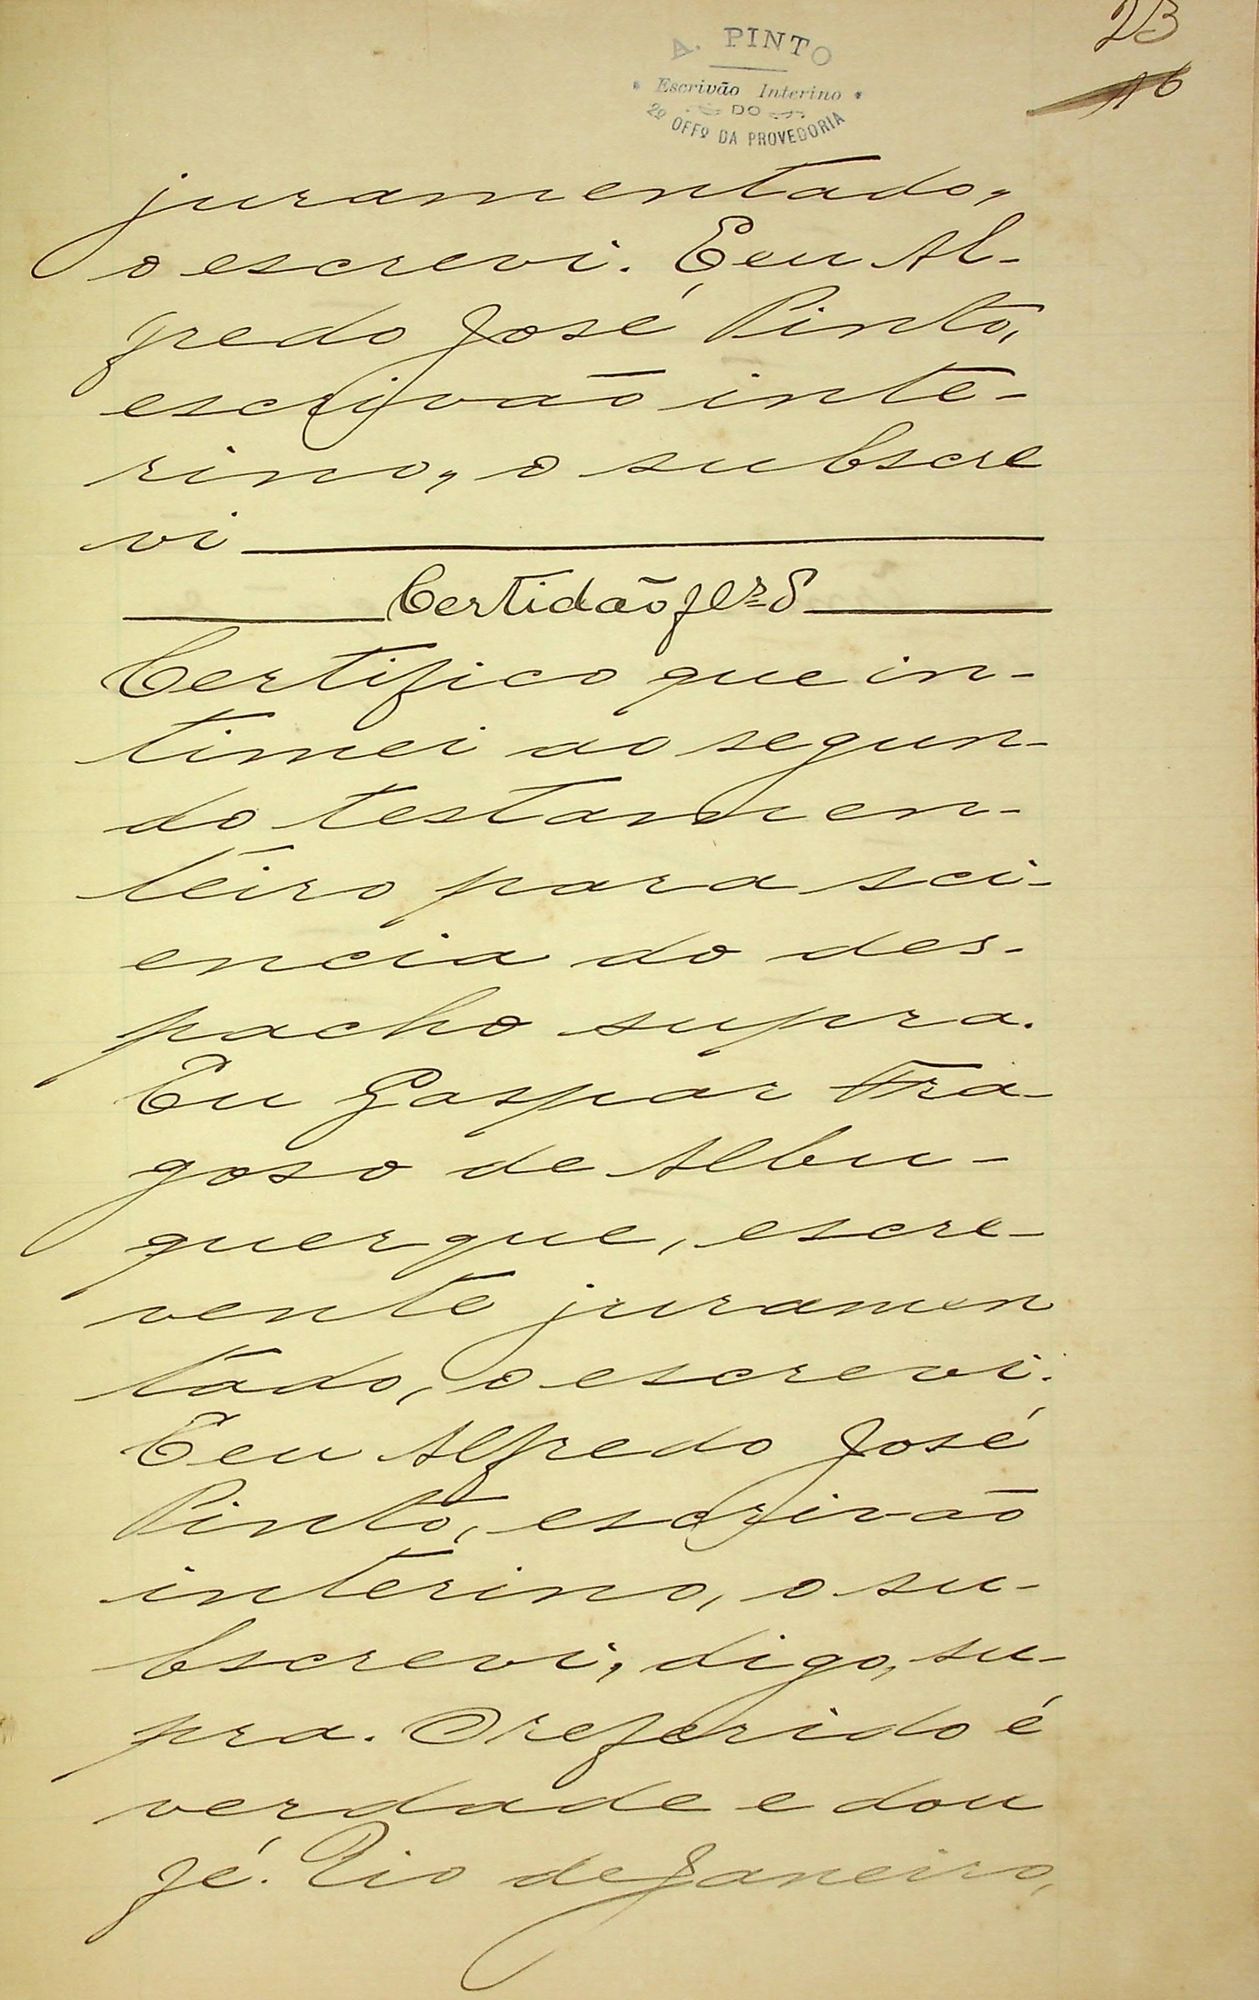 23
16
A. PINTO
Escrivão Interino
DO
2º OFFº DA PROVEDORIA
juramentado,
o escrevi. E eu Al-
fredo José Pinto,
escrivão inte-
rino, o subscre
vi
Certidão
Certifico que in-
timei ao segun-
do testamen-
teiro para sci-
encia do des-
pacho supra.
Eu Gaspar Fra-
goso de Albu-
querque, escre-
vente juramen
tado, o escrevi.
E eu Alfredo José
Pinto, escrivão
interino, o su-
bscrevi, digo, su-
pra. O referido é
verdade e dou
fé. Rio de Janeiro,